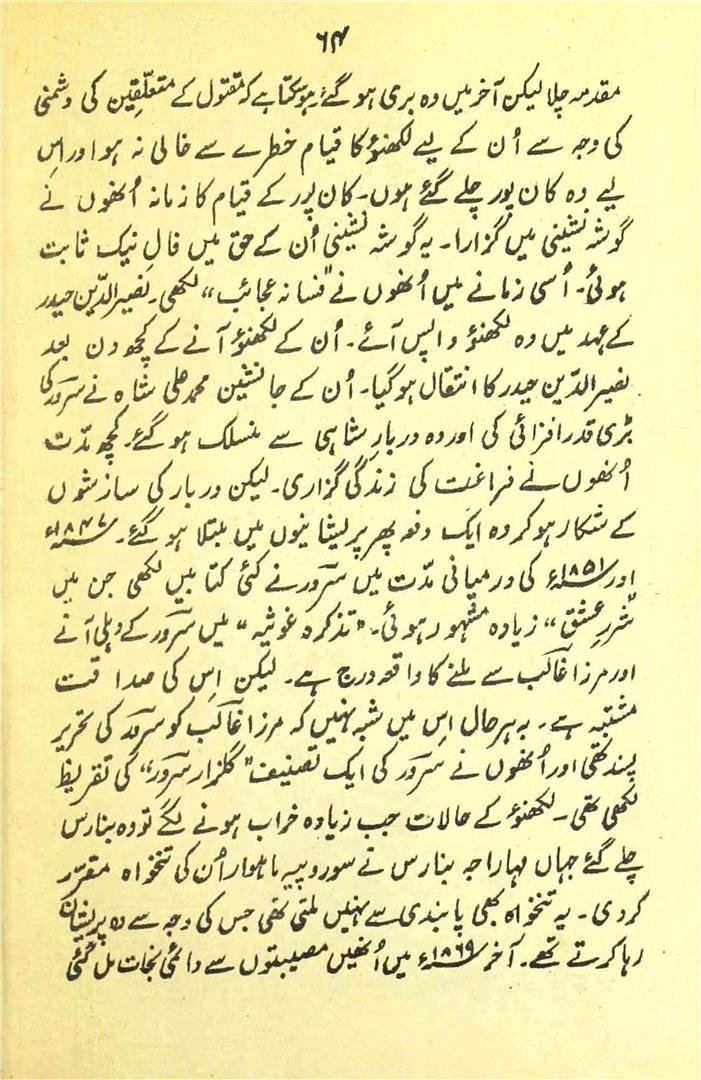 ۶۴
مقدمہ چلا لیکن آخر میں وہ بری ہو گئے۔ ہو سکتا ہے کہ مقتول کے متعلّقین کی دشمنی
کی وجہ سے اُن کے لیے لکھنؤ کا قیام خطرے سے خالی نہ ہو اور اِس
لیے وہ کان پور چلے گئے ہوں۔ کان پور کے قیام کا زمانہ اُنھوں نے
گوشہ نشینی میں گزارا۔ یہ گوشہ نشینی اُن کے حق میں فالِ نیک ثابت
ہوئی۔ اُسی زمانے میں اُنھوں نے "فسانہ عجائب" لکھی۔ نصیر الدّین حیدر
کے عہد میں وہ لکھنؤ واپس آئے۔ اُن کے لکھنؤ آنے کے کچھ دن بعد
نصیر الدّین حیدر کا انتقال ہو گیا۔ اُن کے جانشین محمد علی شاہ نے سرور کی
بڑی قدر افزائی کی اور وہ دربارِ شاہی سے منسلک ہو گئے۔ کچھ مدّت
اُنھوں نے فراغت کی زندگی گزاری۔ لیکن دربار کی سازشوں
کے شکار ہو کر وہ ایک دفعہ پھر پریشانیوں میں مبتلا ہو گئے۔ ۱۸۴۷ء
اور ۱۸۵۱ء کی درمیانی مدّت میں سرور نے کئی کتابیں لکھی جن میں
شررِ عشق" زیادہ مشہور ہوئی۔ "تذکرہ غوثیہ" میں سرور کے دہلی آنے
اور مرزا غالب سے ملنے کا واقعہ درج ہے۔ لیکن اِس کی صداقت
مشتبہ ہے۔ بہر حال اِس میں شبہ نہیں کہ مرزا غالب کو سرور کی تحریر
پسند تھی اور اُنھوں نے سرور کی ایک تصنیف "گلزار سرور" کی تقریظ
لکھی تھی۔ لکھنؤ کے حالات جب زیادہ خراب ہونے لگے تو وہ بنارس
چلے گئے جہاں مہاراجہ بنارس نے سو روپیہ ماہوار اُن کی تنخواہ مقرّر
کر دی۔ یہ تنخواہ بھی پابندی سے نہیں ملتی تھی جس کی وجہ سے وہ پریشان
رہا کرتے تھے۔ آخر ۱۸۶۹ء میں اُنھیں مصیبتوں سے دائمی نجات مل گئی